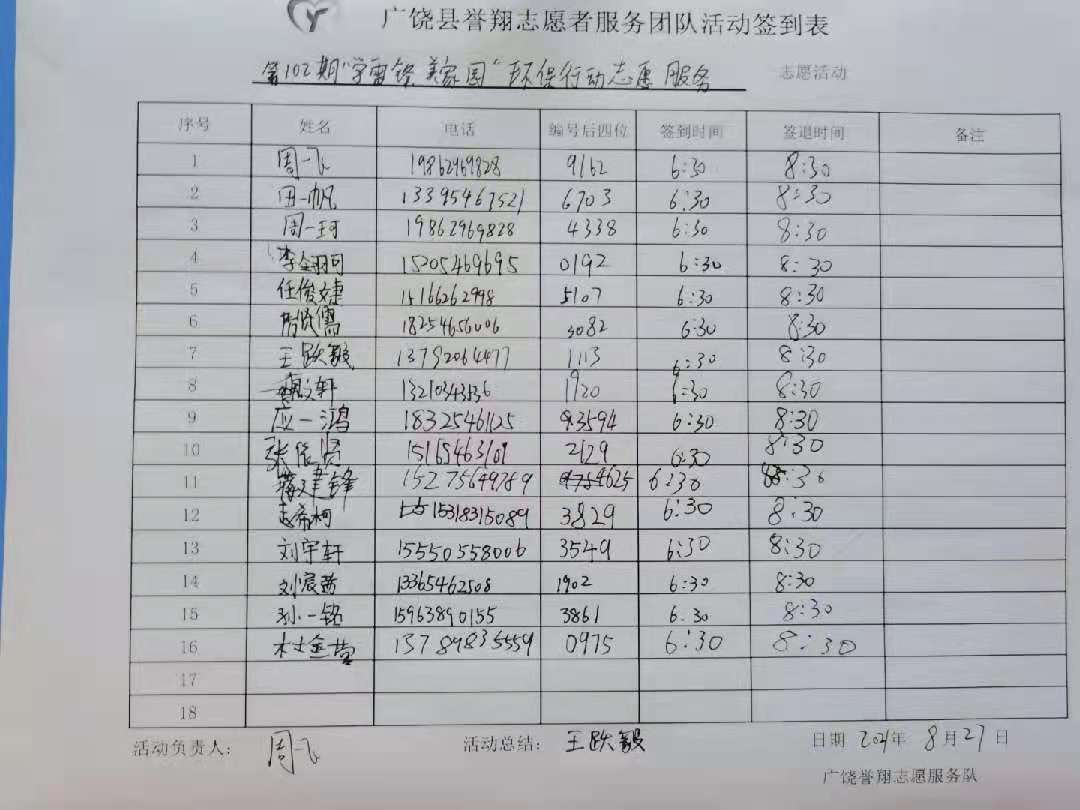 广饶县誉翔志愿者服务团队活动签到表
第102期“学雷锋 美家园”环保行动志愿服务 志愿活动
序号 姓名 电话 编号后四位 签到时间 签退时间 备注
1 周一飞 19862969828 9162 6:30 8:30
2 田一帆 13395467521 6703 6:30 8:30
3 周一珂 19862969828 4338 6:30 8:30
4 李金珂 15205469695 0192 6:30 8:30
5 任俊婕 15166262998 5107 6:30 8:30
6 18254656006 3082 6:30 8:30
7 王跃毅 13792064477 1113 6:30 8:30
8 轩 13210343136 1920 6:30 8:30
9 应一鸿 18325461125 3594 6:30 8:30
10 张依贤 15165463101 2129 6:30 8:30
11 建锋 15275649789 4625 6:30 8:30
12 希柯 15318315089 3829 6:30 8:30
13 刘宇轩 15550558006 3549 6:30 8:30
14 刘宸 13365462508 1902 6:30 8:30
15 孙一铭 15963890155 3861 6.30 8:30
16 13789835559 0975 6:30 8:30
17
18
活动负责人: 周一飞 活动总结: 王跃毅 日期 2021年 8月27日
广饶誉翔志愿服务队